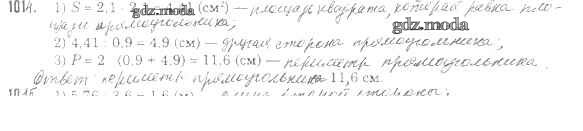 1014. 1) S = 2,1 · 2,1 = 4,41 (см²) — площадь квадрата, которая равна пло-
щади прямоугольника;
gdz.moda
gdz.moda
2) 4,41 : 0,9 = 4,9 (см) — другая сторона прямоугольника;
3) P = 2 (0,9 + 4,9) = 11,6 (см) — периметр прямоугольника.
Ответ: периметр прямоугольника 11,6 см.
1015. 1) 5,76 : 3,6 = 1,6 (м) стороны;